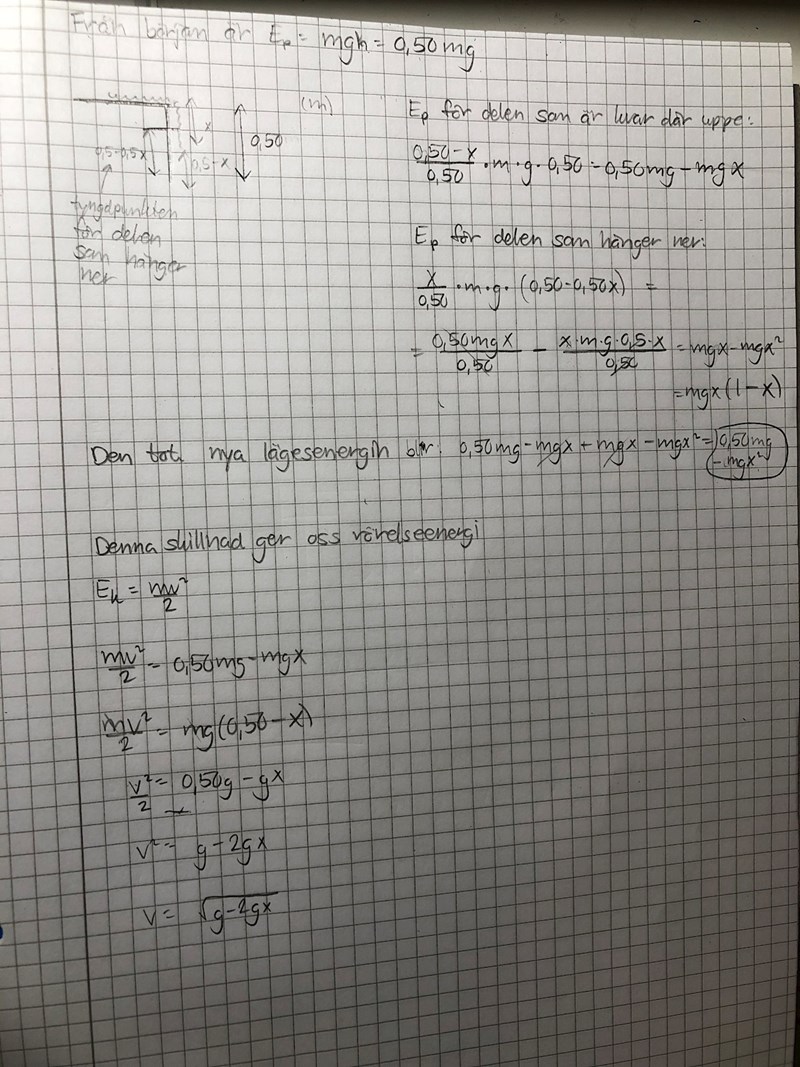 Från början är Ep = mgh = 0,50mg
(m)
x
0,50
0,5-0,5x
0,5-x
tyngdpunkten
för delen
som hänger
ner
Ep för delen som är kvar där uppe:
(0,50-x)/0,50 · m · g · 0,50 = 0,50mg - mgx
Ep för delen som hänger ner:
x/0,50 · m · g · (0,50-0,50x) =
= 0,50mgx/0,50 - x·m·g·0,5·x/0,50 = mgx - mgx²
= mgx(1-x)
Den tot. nya lägesenergin blir: 0,50mg - mgx + mgx - mgx² = 0,50mg
- mgx²
Denna skillnad ger oss rörelseenergi
Ek = mv²/2
mv²/2 = 0,50mg - mgx
mv²/2 = mg(0,50 - x)
v²/2 = 0,50g - gx
v² = g - 2gx
v = √(g-2gx)